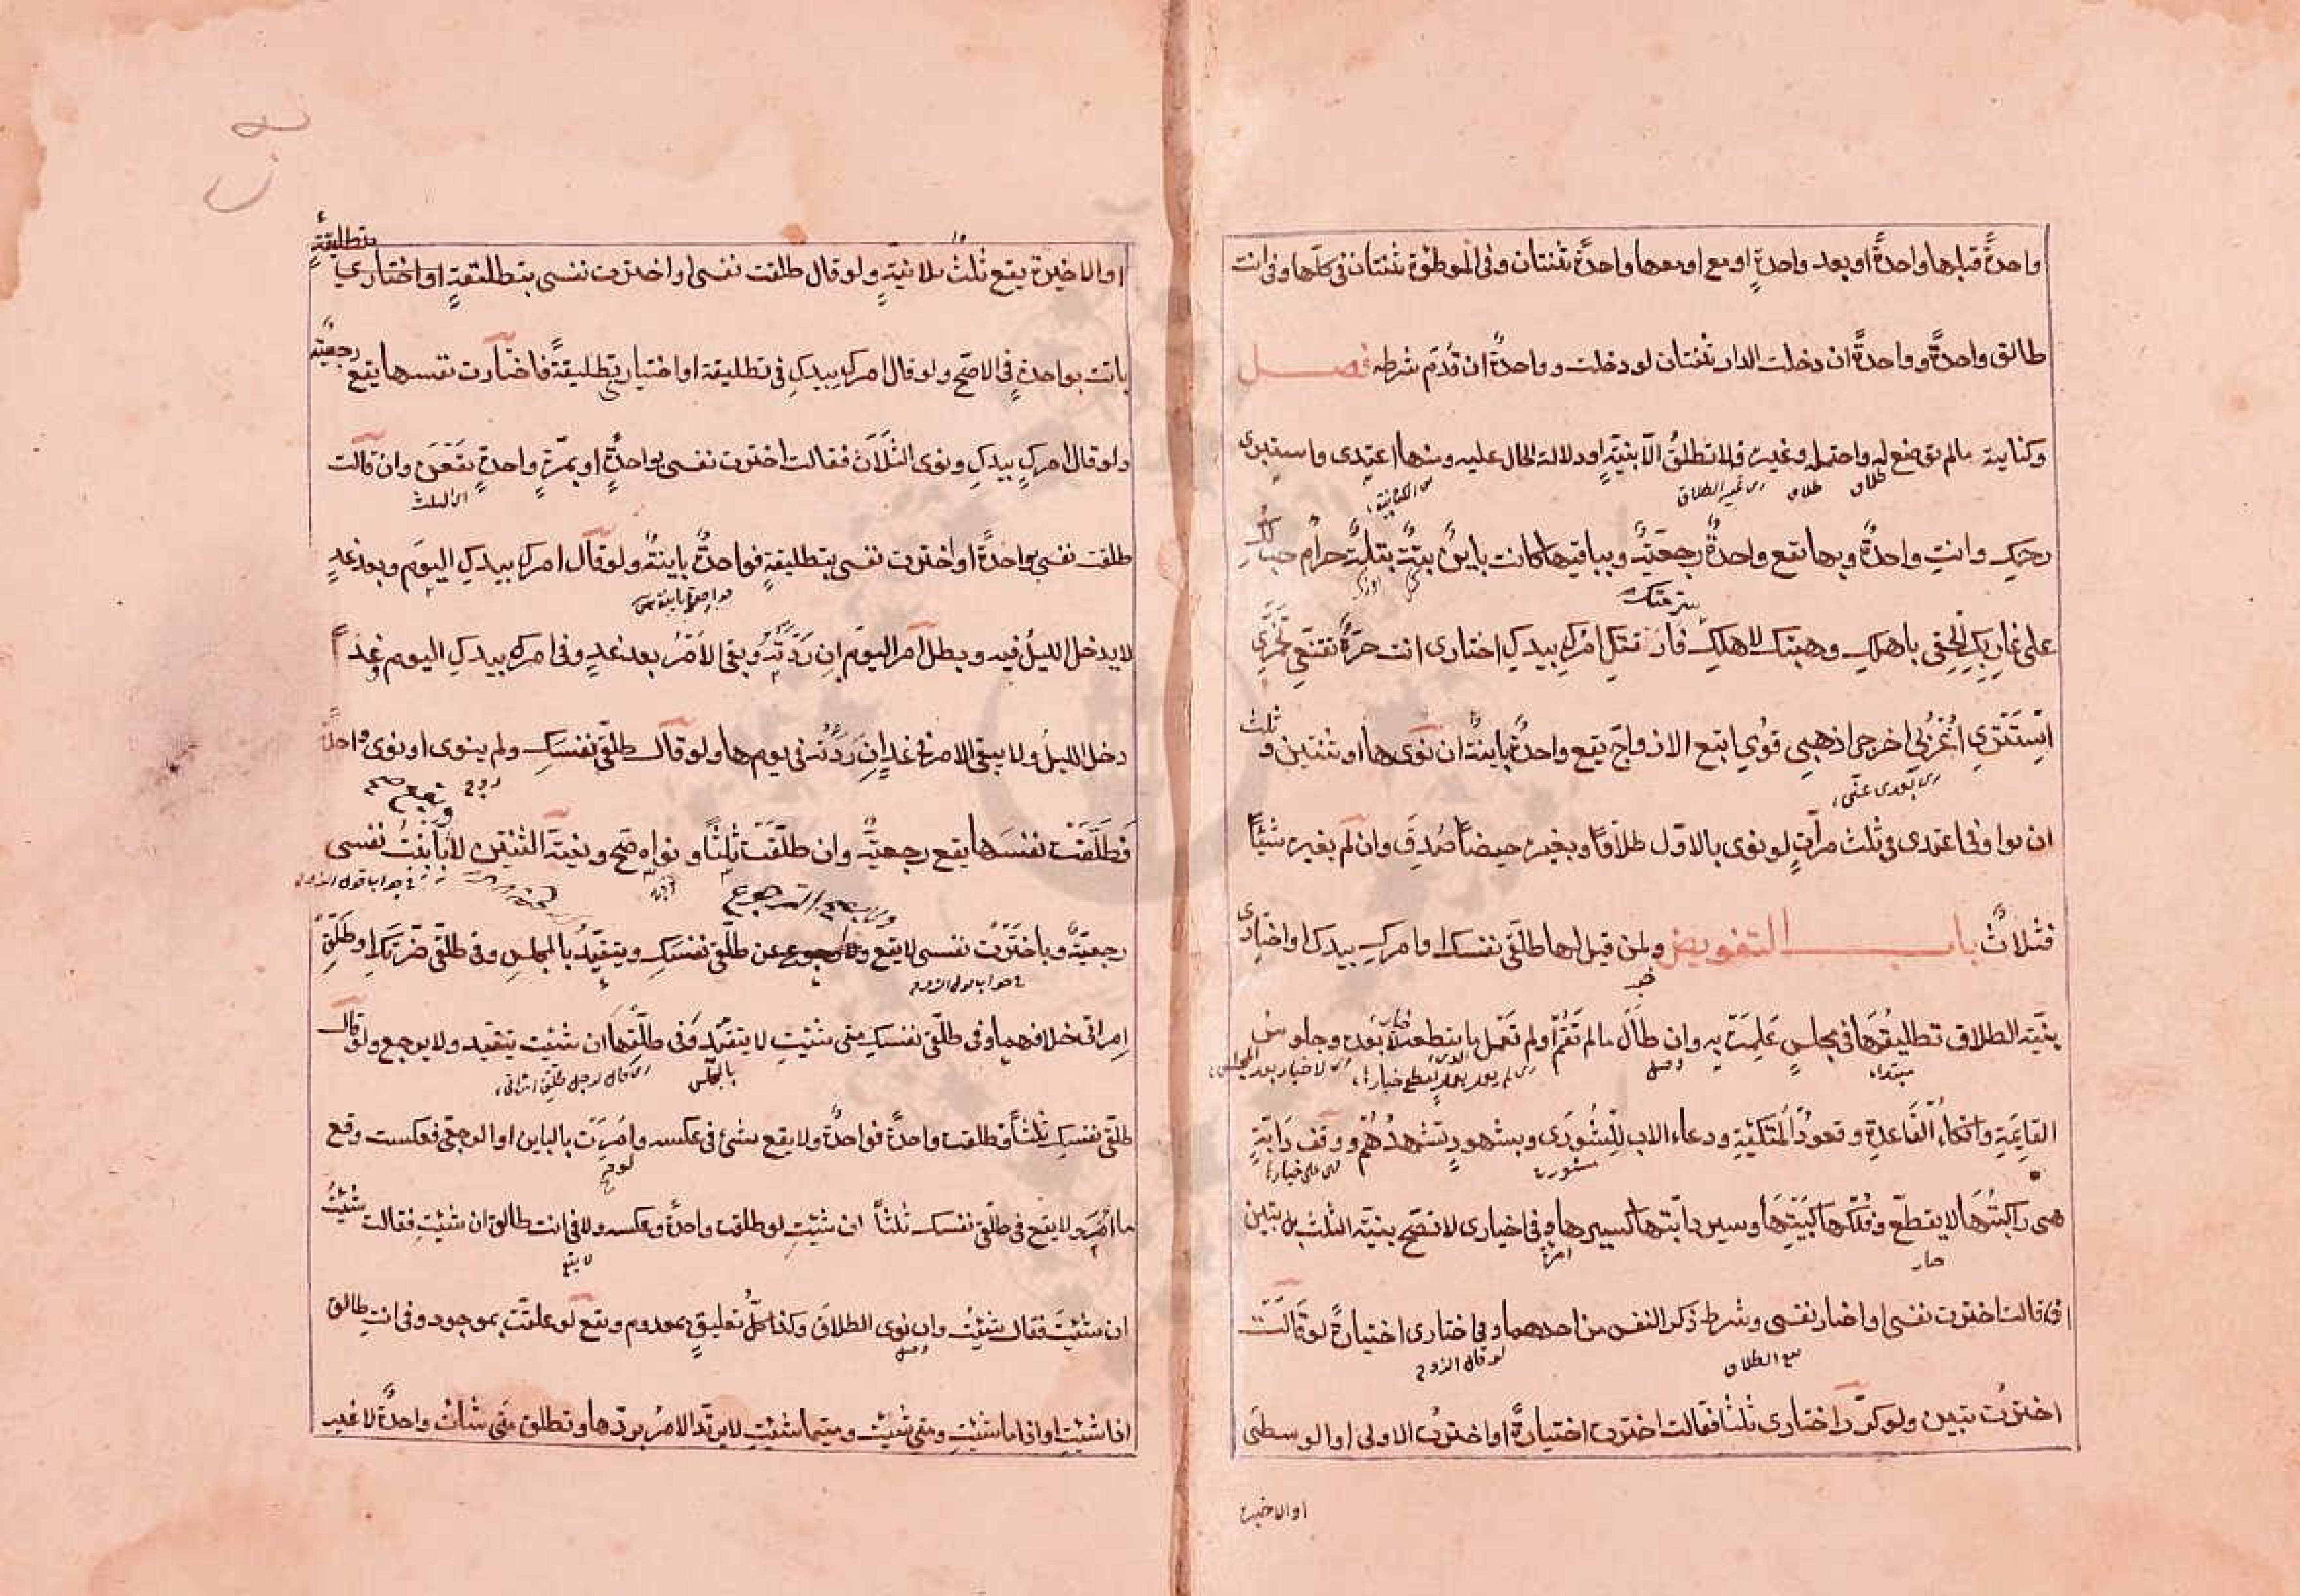 واحدةً قبلها واحدةً او بعد واحدةٍ او مع او معها واحدةً ثنتان وفى الموطؤة ثنتان فى كلّها وفى انت
طالق واحدةً وواحدةً ان دخلت الدار ثنتان لو دخلت وواحدةً ان قُدّم شرطه فصل
وكنايته مالم يوضع له واحتمله وغيره فلا تطلقُ الّا بنيّةٍ او دلالة الحال عليه ومنها اعتدى واستبرى
طلاق طلاق اى غير الطلاق
رحمكِ وانتِ واحدةٌ وبها تقع واحدةٌ رجعيّةٌ وبباقيها كانت باينٌ بتّةٌ بتلةٌ حرامٌ حبلكِ
على غاربكِ الحقى باهلكِ وهبتك لاهلكِ فارقتكِ امركِ بيدكِ اختارى انت حرّةٌ تقنّعى تخمّرى
استترى اغربى اخرجى اذهبى قومى ابتغ الازواج يقع واحدةٌ باينةٌ ان نوى ها او ثنتين وثلث
اى بعدى عنى
ان نوا وفى اعتدى فى ثلث مرآتٍ لو نوى بالاوّل طلاقًا وبغيره حيضًا صُدِقَ وان لم بغيره شيئًا
فثلاثٌ باب التفويض ولمن قيل لها طلّقى نفسك او امركِ بيدك او اختارى
بنيّة الطلاق تطليقُهَا فى مجلسٍ عَلِمَتْ به وان طَالَ مالم تَقُمْ او لم تَعْمَل ما يقطعه لا بعده وجلوس
مبتداء
القايمةِ واتكاءُ القَاعدةِ وقعودُ المتّكئةِ ودعاء الاب للشُّورَى وبشهودٍ تشهدُهُمْ ووقف دابّةٍ
مشورت
هى راكبتُهَا لا يقطع وفُلكُها كبَيْتِهَا وسير دابّتها كسيرها وفى اختيارى لا تصحّ بنيّة الثلث بل تبين
ان قالت اخترت نفسى او اختار نفسى وشرط ذكر النفس من احدهما وفى اختارى اختيارةً لو قَالَتْ
لو قال الزوج
اخترْتُ تبين ولو كرّر اختارى ثلثا فقالت اخترت اختيارةً او اخترت الاولى او الوسطى
او الاخيرة
او الاخيرة يقع ثلث بلا نيّةٍ ولو قال طلقت نفسى او اخترت نفسى بتطليقةٍ او اختارى بتطليقةٍ
بانت بواحدةٍ فى الاصحّ ولو قال امركِ بيدكِ فى تطليقة او اختيارى تطليقةً فاختارت نفسها يقع رجعيّة
ولو قال امركِ بيدكِ ونوى الثّلَاثَ فقالت اخترت نفسى بواحدةٍ او بمرّةٍ واحدةٍ يقعن وان قالت
اى الثلث
طلقت نفسى بواحدةً او اخترت نفسى بتطليقةٍ فواحدةٌ باينةٌ ولو قال امركِ بيدكِ اليوم وبعد غدٍ
لا يدخل الليلُ فيه ويطل امر اليوم ان رَدَّتْهُ وبقى الأمْرُ بعد غدٍ وفى امركِ بيدكِ اليوم وغدًا
دخل الليلُ ولا يبقى الامر فى غدٍ ان رَدَّتْهُ فى يومها ولو قال طلّقى نفسَكِ ولم ينوى او نوى واحدةً
فطلّقت نفسَها يقع رجعيّةٌ وان طلّقت ثلثًا ونواه صحّ ونيّة الثنتين لا بابنتُ نفسى
فى جواب قول الزوج
رجعيّةٌ وباخترتُ نفسى لا يقع ولا رجوع عن طلّقى نفسَكِ ويتقيّدُ بالمجلس وفى طلّقى ضرّتكِ او طلّق
فى جواب قول الزوج
امراتى خلافهما وفى طلّقى نفسكِ متى شئتِ لا يتقيّد وفى طلّقها ان شئت يتقيد ولا يرجع ولو قال
بالمجلس
طلّقى نفسكِ ثلثاً فطلقت واحدةً فواحدةٌ ولا يقع شئ فى عكسه وامرت بالباين او الرجعى فعكست وقع
ما امر ولا يقع فى طلّقى نفسك ثلثاً ان شئتِ لو طلقت واحدةً وعكسه ولا فى انت طالق ان شئتِ فقالت شئتُ
لا يقع
ان شئتَ فقال شئتُ وان نوى الطلاق وكذا كلُّ تعليقٍ بمعدوم ويقع لو علقت بموجود وفى انتِ طالق
اذا شئتِ او اذا ما شئتِ ومتى شئتِ ومتيما شئتِ لا يرتدّ الامرُ بردّها وتطلق متى شائت واحدةً لا غير